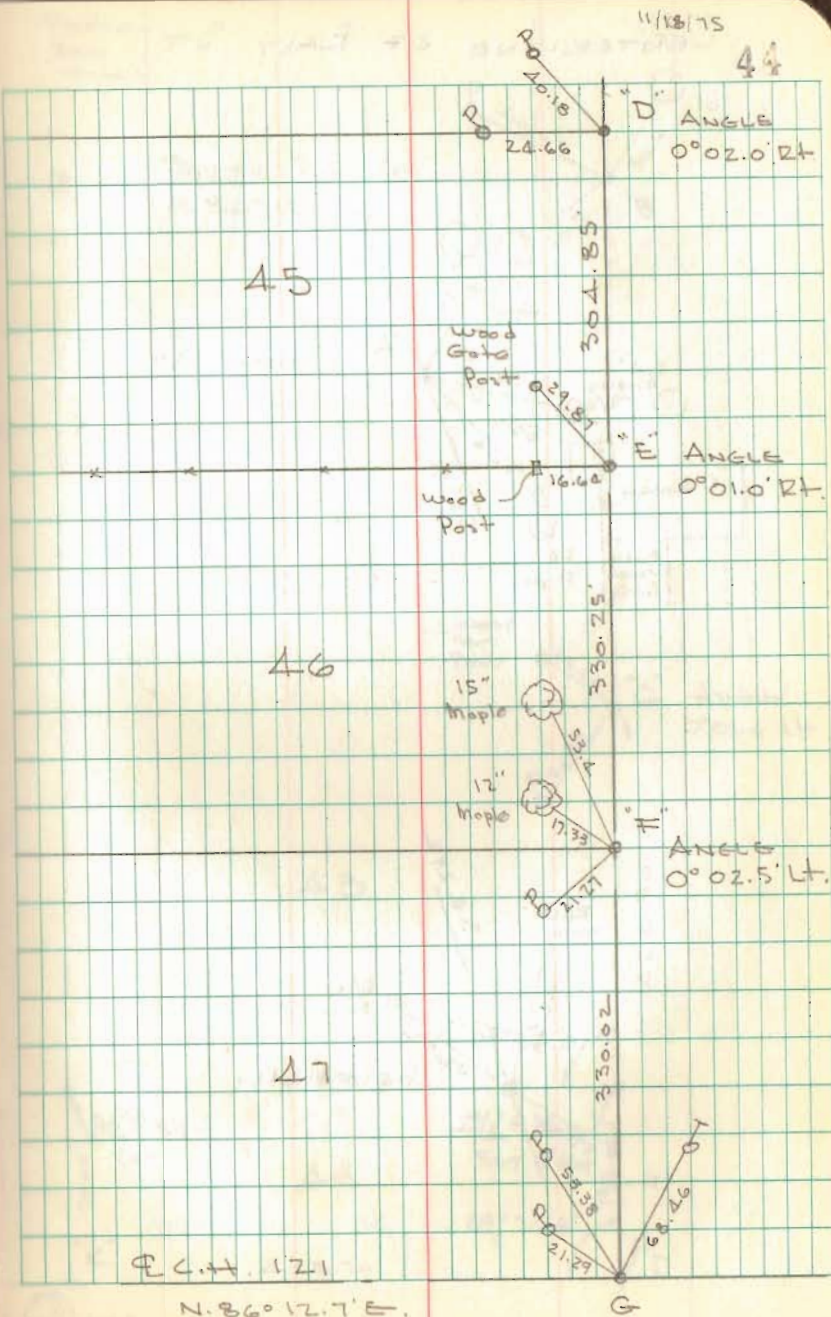 11/18/75
44
P
40.18
"D" ANGLE
P
24.66
0°02.0' Rt.
304.85'
45
Wood
Gate
Post
29.87
"E" ANGLE
16.64
0°01.0' Rt.
Wood
Post
330.25'
46
15"
Maple
53.4
12"
Maple
17.33
"F"
ANGLE
0°02.5' Lt.
P
21.27
330.02
47
P
T
58.38
68.46
P
21.29
℄ C.H. 121
N.86°12.7'E.
G